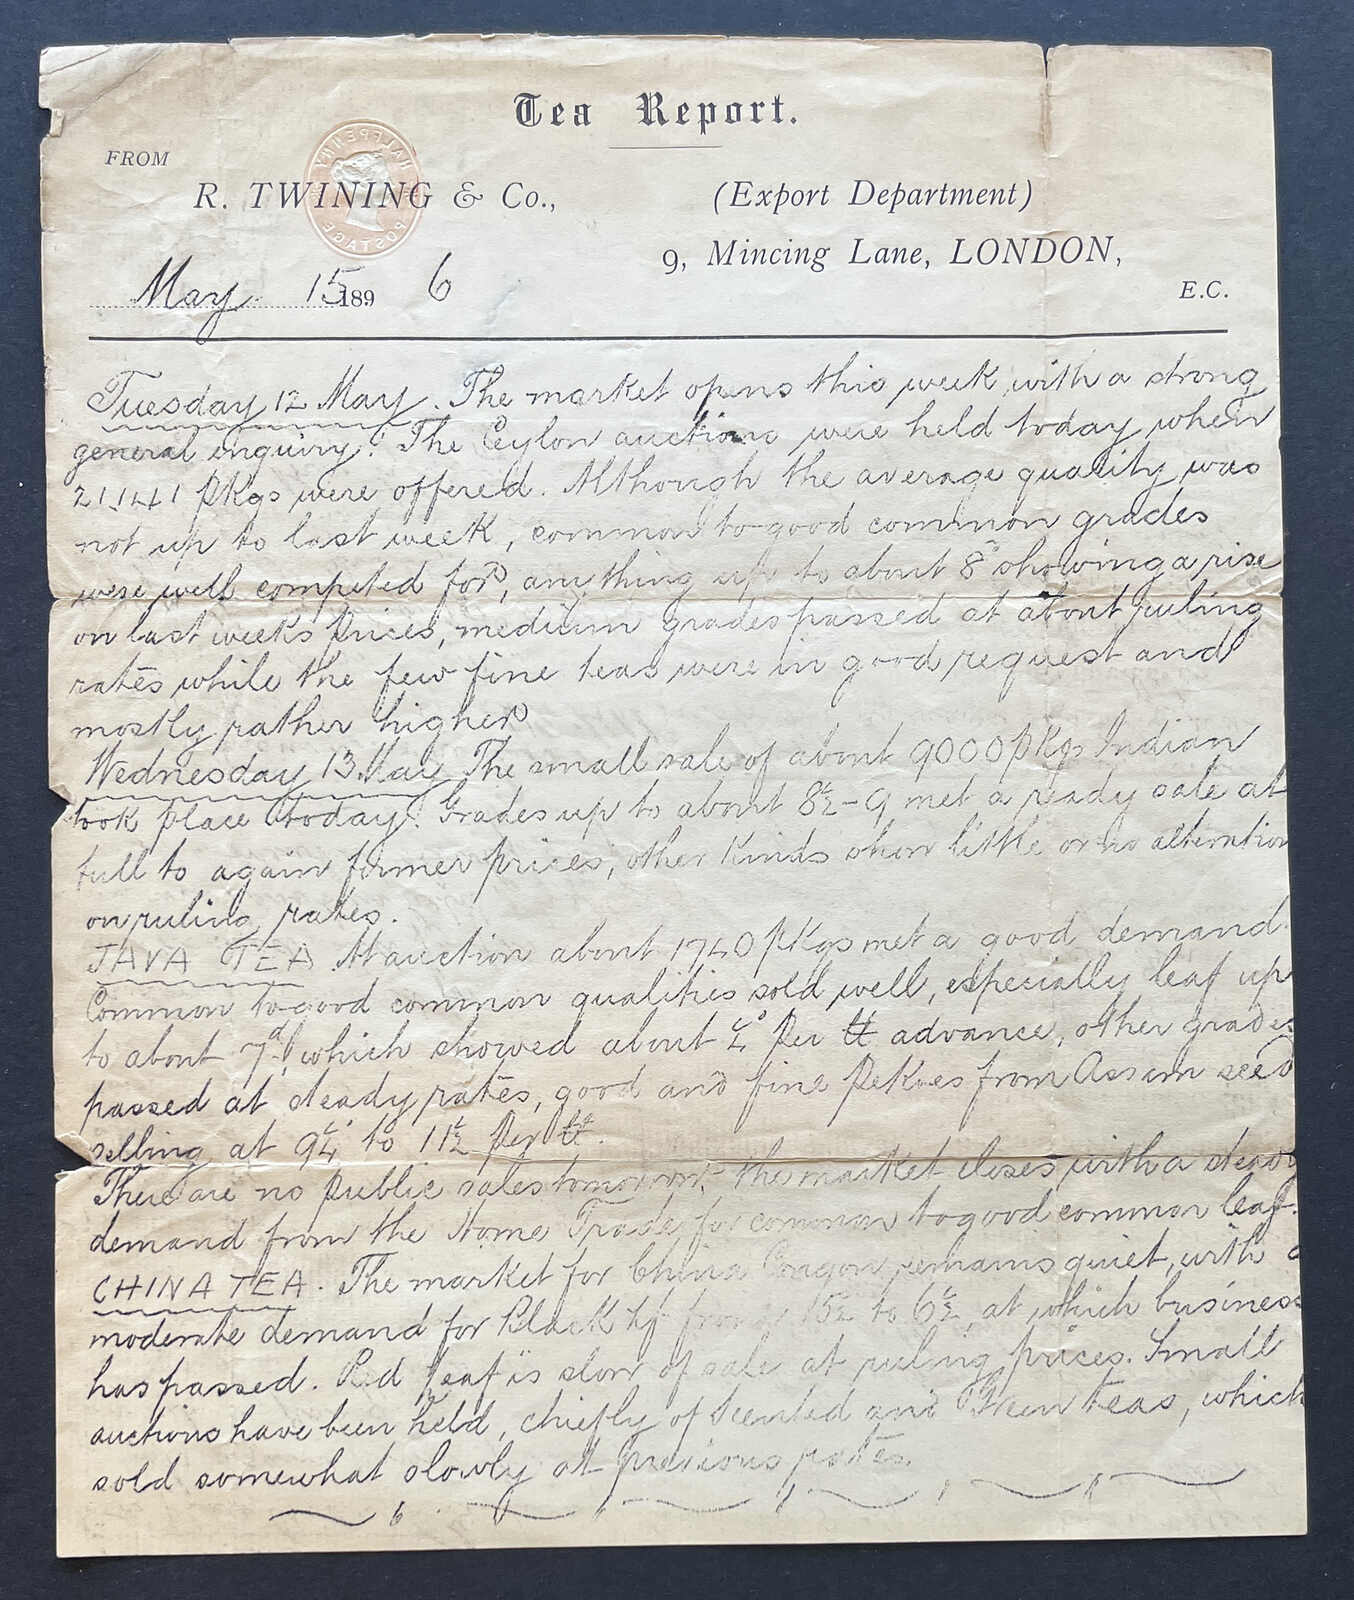 Tea Report.
FROM
R. TWINING & Co., (Export Department)
9, Mincing Lane, LONDON,
E.C.
May 15 1896
HALFPENNY POSTAGE
Tuesday 12 May. The market opens this week with a strong
general enquiry. The Ceylon auctions were held today when
21,141 pkgs were offered. Although the average quality was
not up to last week, common to good common grades
were well competed for, anything up to about 8d showing a rise
on last weeks prices, medium grades passed at about ruling
rates while the few fine teas were in good request and
mostly rather higher
Wednesday 13 May The small sale of about 9000 pkgs Indian
took place today. Grades up to about 8½-9 met a ready sale at
full to again former prices, other kinds show little or no alteration
on ruling rates.
JAVA TEA. At auction about 1740 pkgs met a good demand.
Common to good common qualities sold well, especially leaf up
to about 7d, which showed about ¼d per lb advance, other grades
passed at steady rates, good and fine Pekoes from Assam seed
selling at 9¼ to 11½ per lb.
There are no public sales tomorrow, the market closes with a steady
demand from the Home Trade for common to good common leaf.
CHINA TEA. The market for China Congou remains quiet, with a
moderate demand for Black lf from 5½ to 6½, at which business
has passed. Red leaf is slow of sale at ruling prices. Small
auctions have been held, chiefly of Scented and Green teas, which
sold somewhat slowly at previous rates.